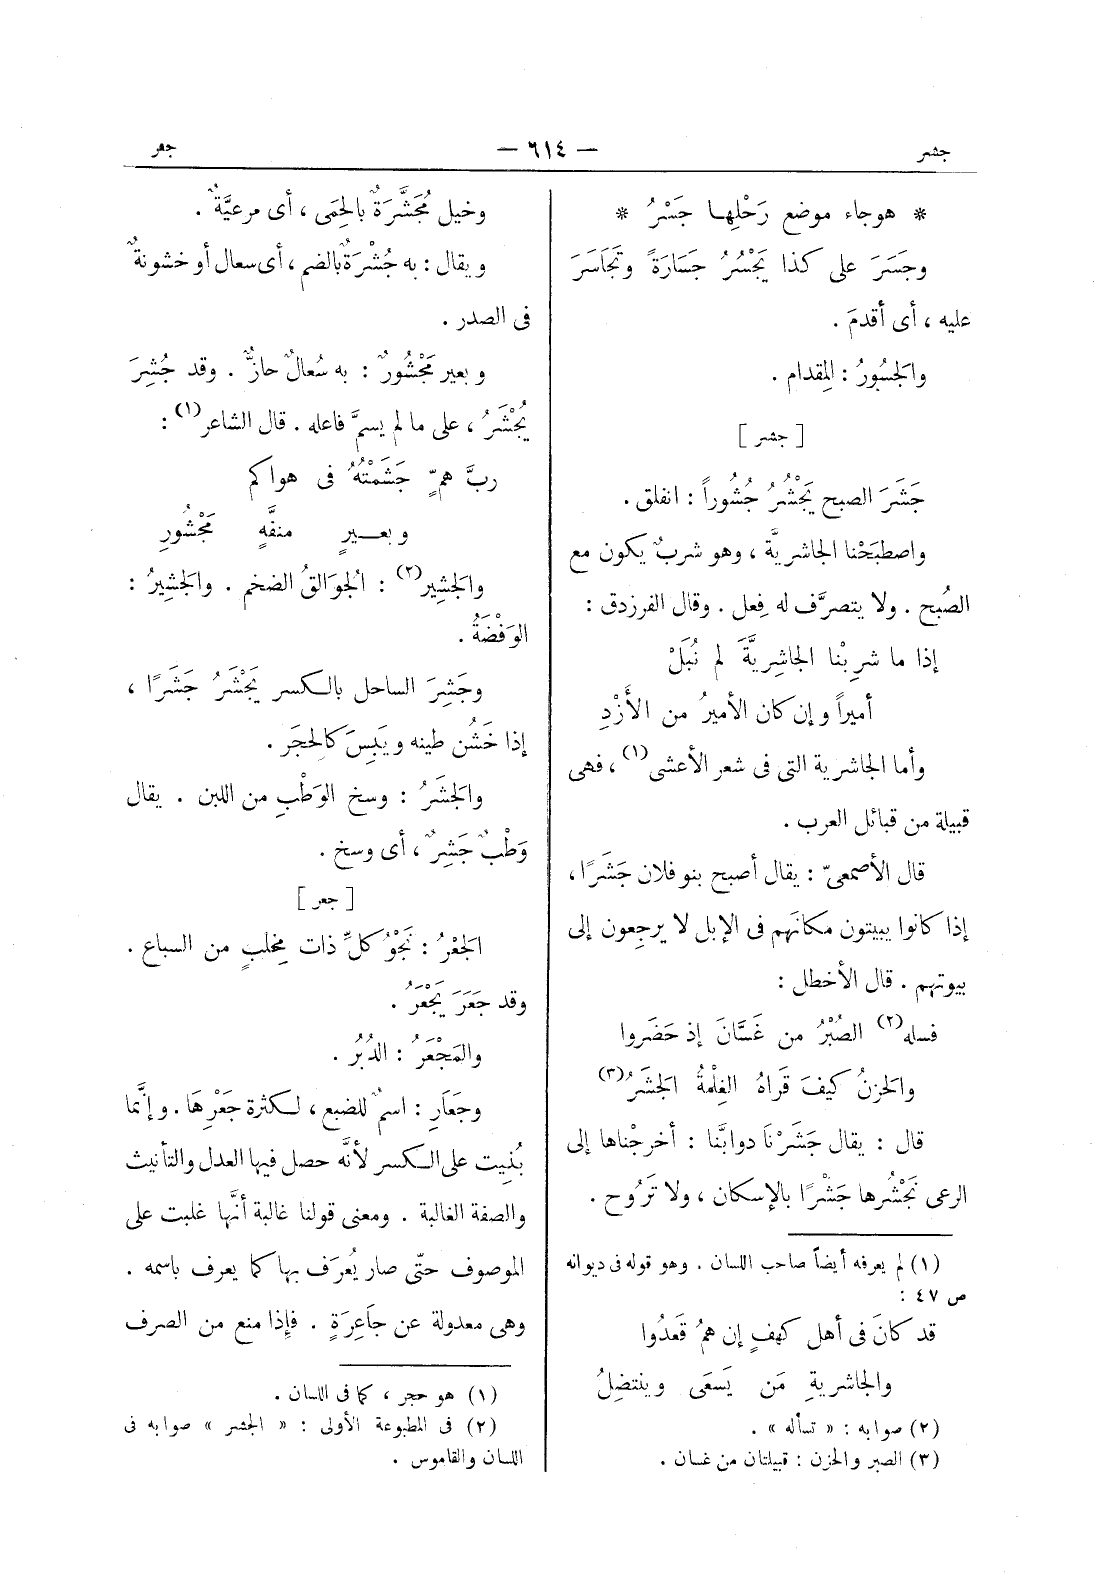 جشر
— ٦١٤ —
جعر
* هوجاء موضع رَحْلِها جَسْرُ *
وجَسَرَ على كذا يَجْسُرُ جَسَارَةً وتَجَاسَرَ
عليه ، أى أقدمَ .
والجَسُورُ : المِقدام .
[ جشر ]
جَشَرَ الصبح يَجْشُرُ جُشُوراً : انفلق .
واصطبَحْنا الجاشريَّة ، وهو شربٌ يكون مع
الصُبح . ولا يتصرَّف له فِعل . وقال الفرزدق :
إذا ما شرِبْنا الجاشِرِيَّةَ لم نُبَلْ
أميراً وإن كان الأميرُ من الأَزْدِ
وأما الجاشرية التى فى شعر الأعشى(١) ، فهى
قبيلة من قبائل العرب .
قال الأصمعىّ : يقال أصبح بنو فلان جَشَرًا ،
إذا كانوا يبيتون مكانَهم فى الإبل لا يرجِعون إلى
بيوتهم . قال الأخطل :
فسله(٢) الصُبْرُ من غَسَّانَ إذ حَضَروا
والحَزنُ كيفَ قَرَاهُ الغِلْمَةُ الجَشَرُ(٣)
قال : يقال جَشَرْنَا دوابَّنا : أخرجْناها إلى
الرعى نَجْشُرها جَشْرًا بالإسكان ، ولا تَرُوح .
(١) لم يعرفه أيضاً صاحب اللسان . وهو قوله فى ديوانه
ص ٤٧ :
قد كانَ فى أهل كهفٍ إن همُ قَعدُوا
والجاشريةِ مَن يَسعَى وينتضلُ
(٢) صوابه : « تسأله » .
(٣) الصبر والحزن : قبيلتان من غسان .
وخيل مُجَشَّرَةٌ بالحِمَى ، أى مرعيَّةٌ .
ويقال : به جُشْرَةٌ بالضم ، أى سعال أو خشونةٌ
فى الصدر .
وبعير مَجْشُورٌ : به سُعالٌ حازٌّ . وقد جُشِرَ
يُجْشَرُ ، على ما لم يسمَّ فاعله . قال الشاعر(١) :
ربَّ همٍّ جَشَمْتُهُ فى هواكم
وبعــيرٍ منفَّهٍ مَجْشُورِ
والجَشِير(٢) : الجُوَالقُ الضخم . والجَشِيرُ :
الوَفْضَةُ .
وجَشِرَ الساحل بالكسر يَجْشَرُ جَشَرًا ،
إذا خَشُن طينه ويَبِسَ كالحجَر .
والجَشَرُ : وسخ الوَطْبِ من اللبن . يقال
وَطْبٌ جَشِرٌ ، أى وسخ .
[ جعر ]
الجَعْرُ : نَجْوُ كلِّ ذات مِخلبٍ من السباع .
وقد جَعَرَ يَجْعَرُ .
والمَجْعَرُ : الدُبُر .
وجَعَارِ : اسمٌ للضبع ، لكثرة جَعْرِهَا . وإنَّما
بُنِيت على الكسر لأنَّه حصل فيها العدل والتأنيث
والصفة الغالبة . ومعنى قولنا غالبة أنَّها غلبت على
الموصوف حتّى صار يُعرَف بها كما يعرف باسمه .
وهى معدولة عن جَاعِرَةٍ . فإِذا منع من الصرف
(١) هو حجر ، كما فى اللسان .
(٢) فى المطبوعة الأولى : « الجشر » صوابه فى
اللسان والقاموس .